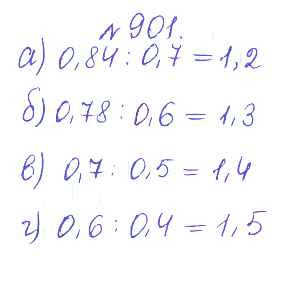 № 901.
а) 0,84 : 0,7 = 1,2
б) 0,78 : 0,6 = 1,3
в) 0,7 : 0,5 = 1,4
г) 0,6 : 0,4 = 1,5